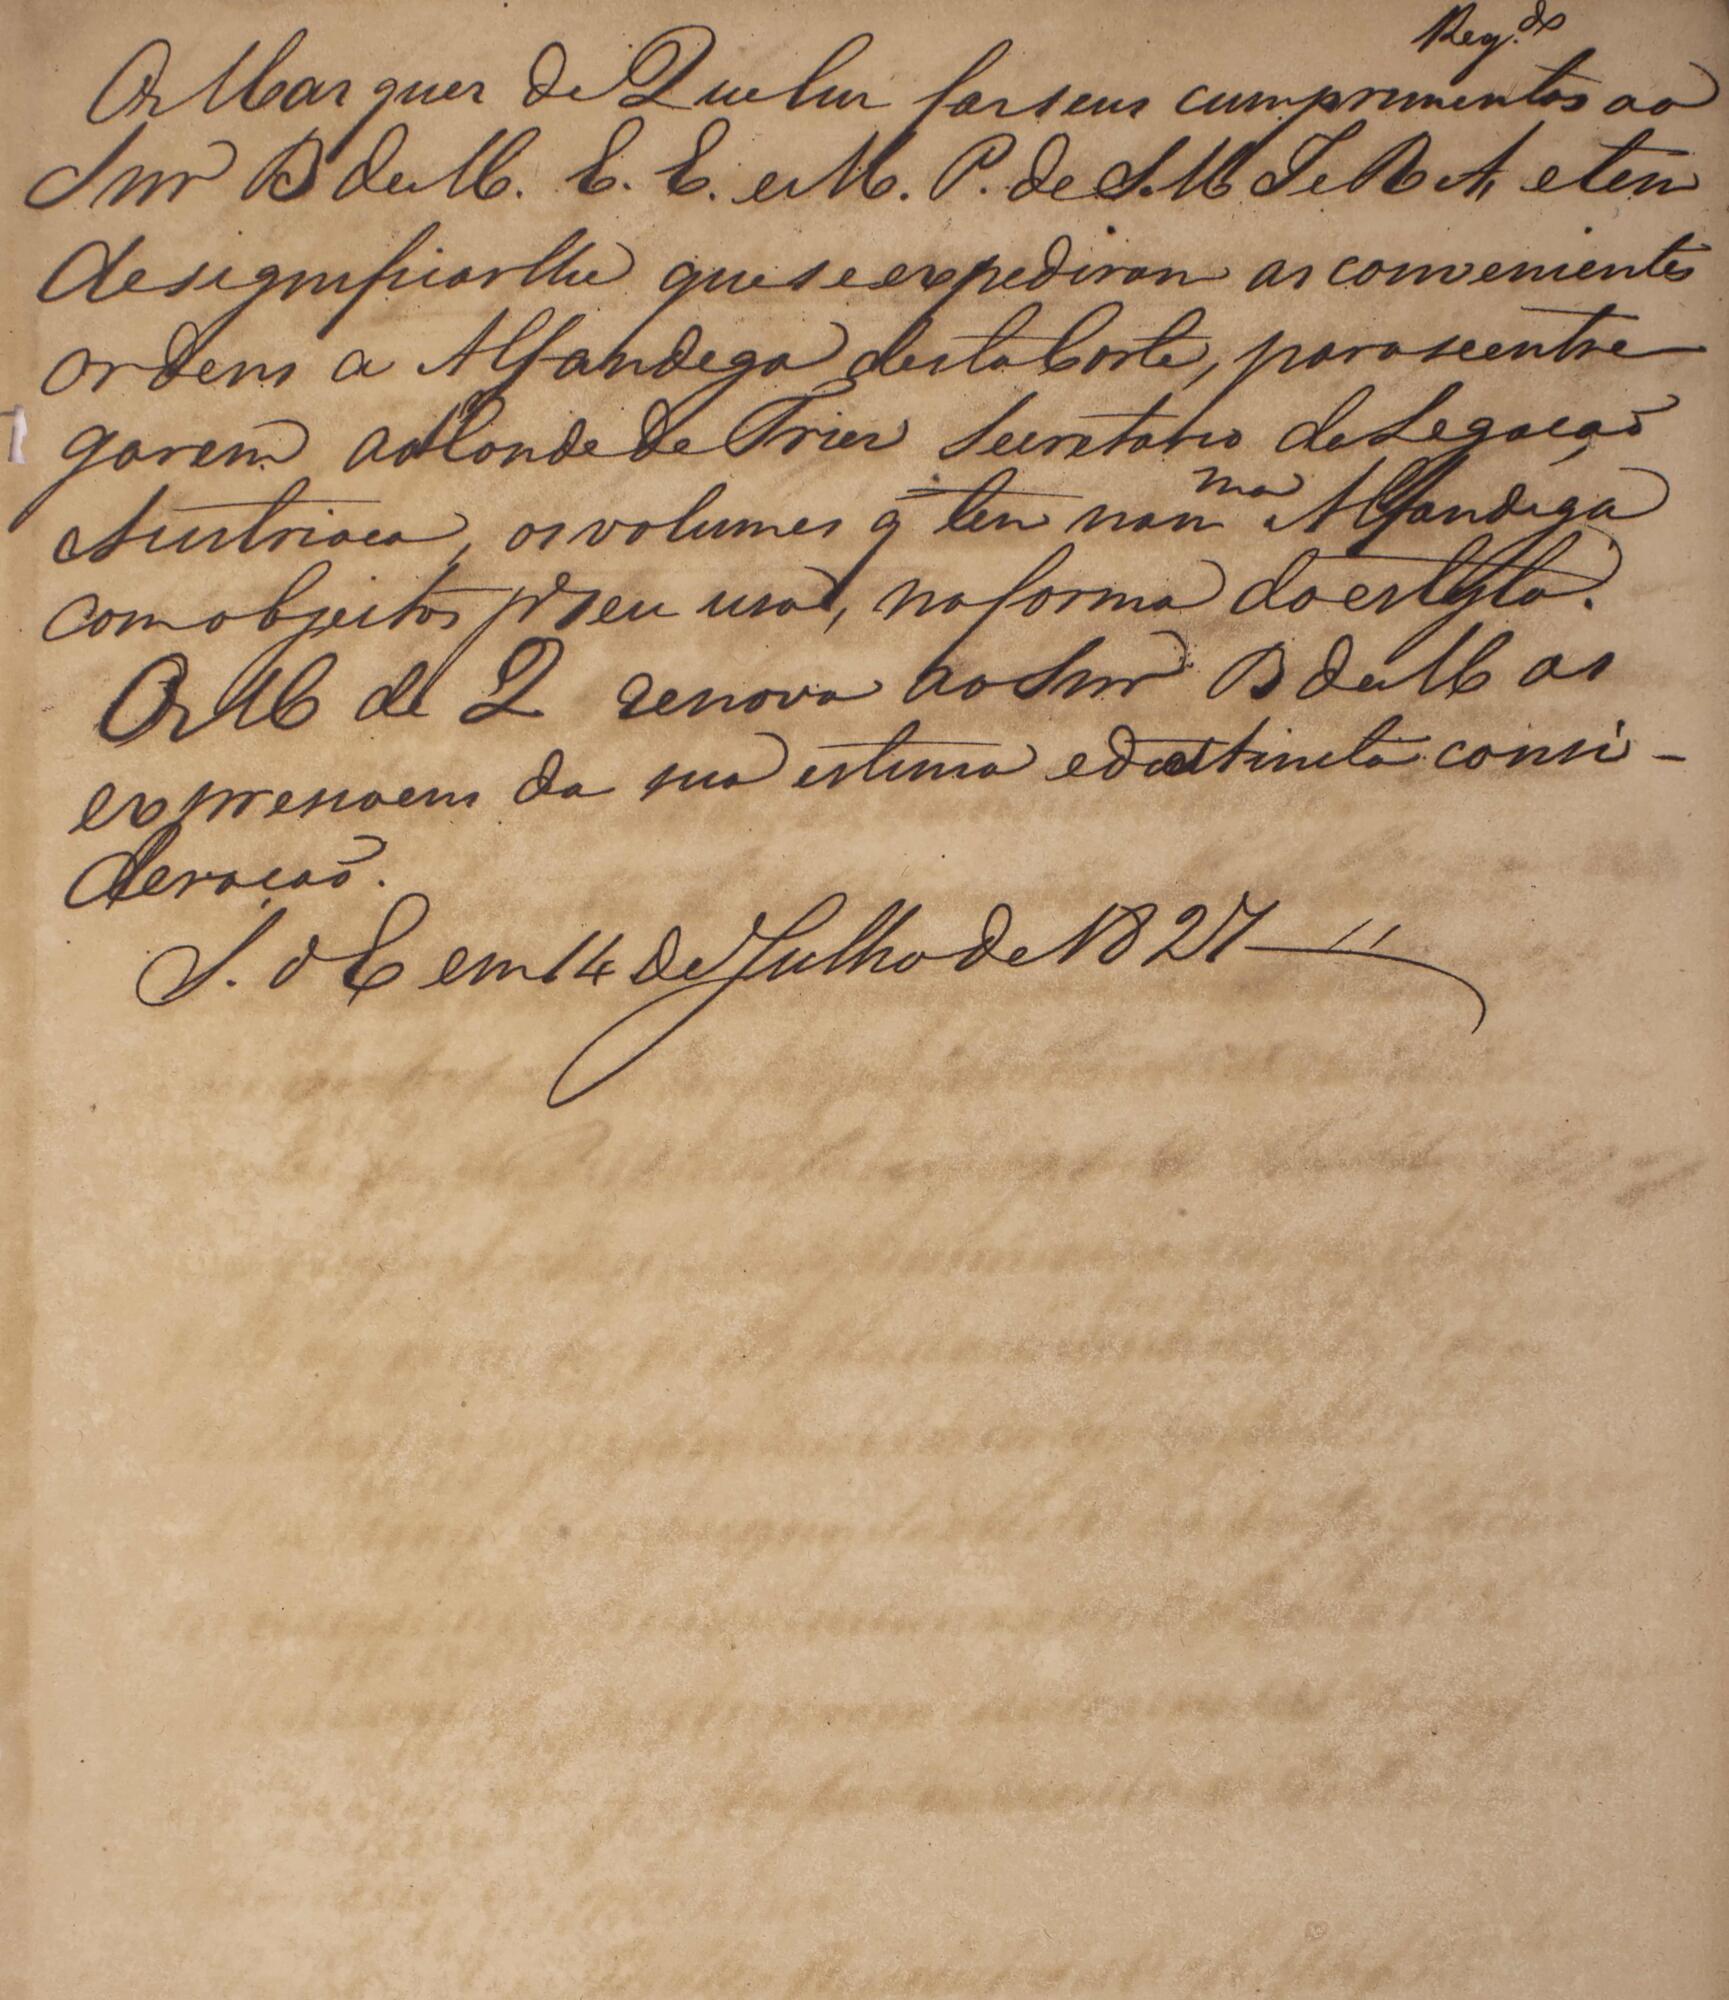 Reg.do
O Marquez de Queluz faz seus cumprimentos ao
Snr B de M. E. E. e M. P. de S. M I e R A, e tem
de significarlhe que se expediram as convenientes
ordens a Alfandega desta Corte, para se entre
garem ao Conde de Trier Secretario da Legação
Austriaca, os volumes q̃ tem na m.ma Alfandega
com objectos pa seu uso, na forma do estylo.
O M de Q renova ao Snr B de M as
expressoens da sua estima e distincta consi-
deração.
S. d E em 14 de Julho de 1827 //